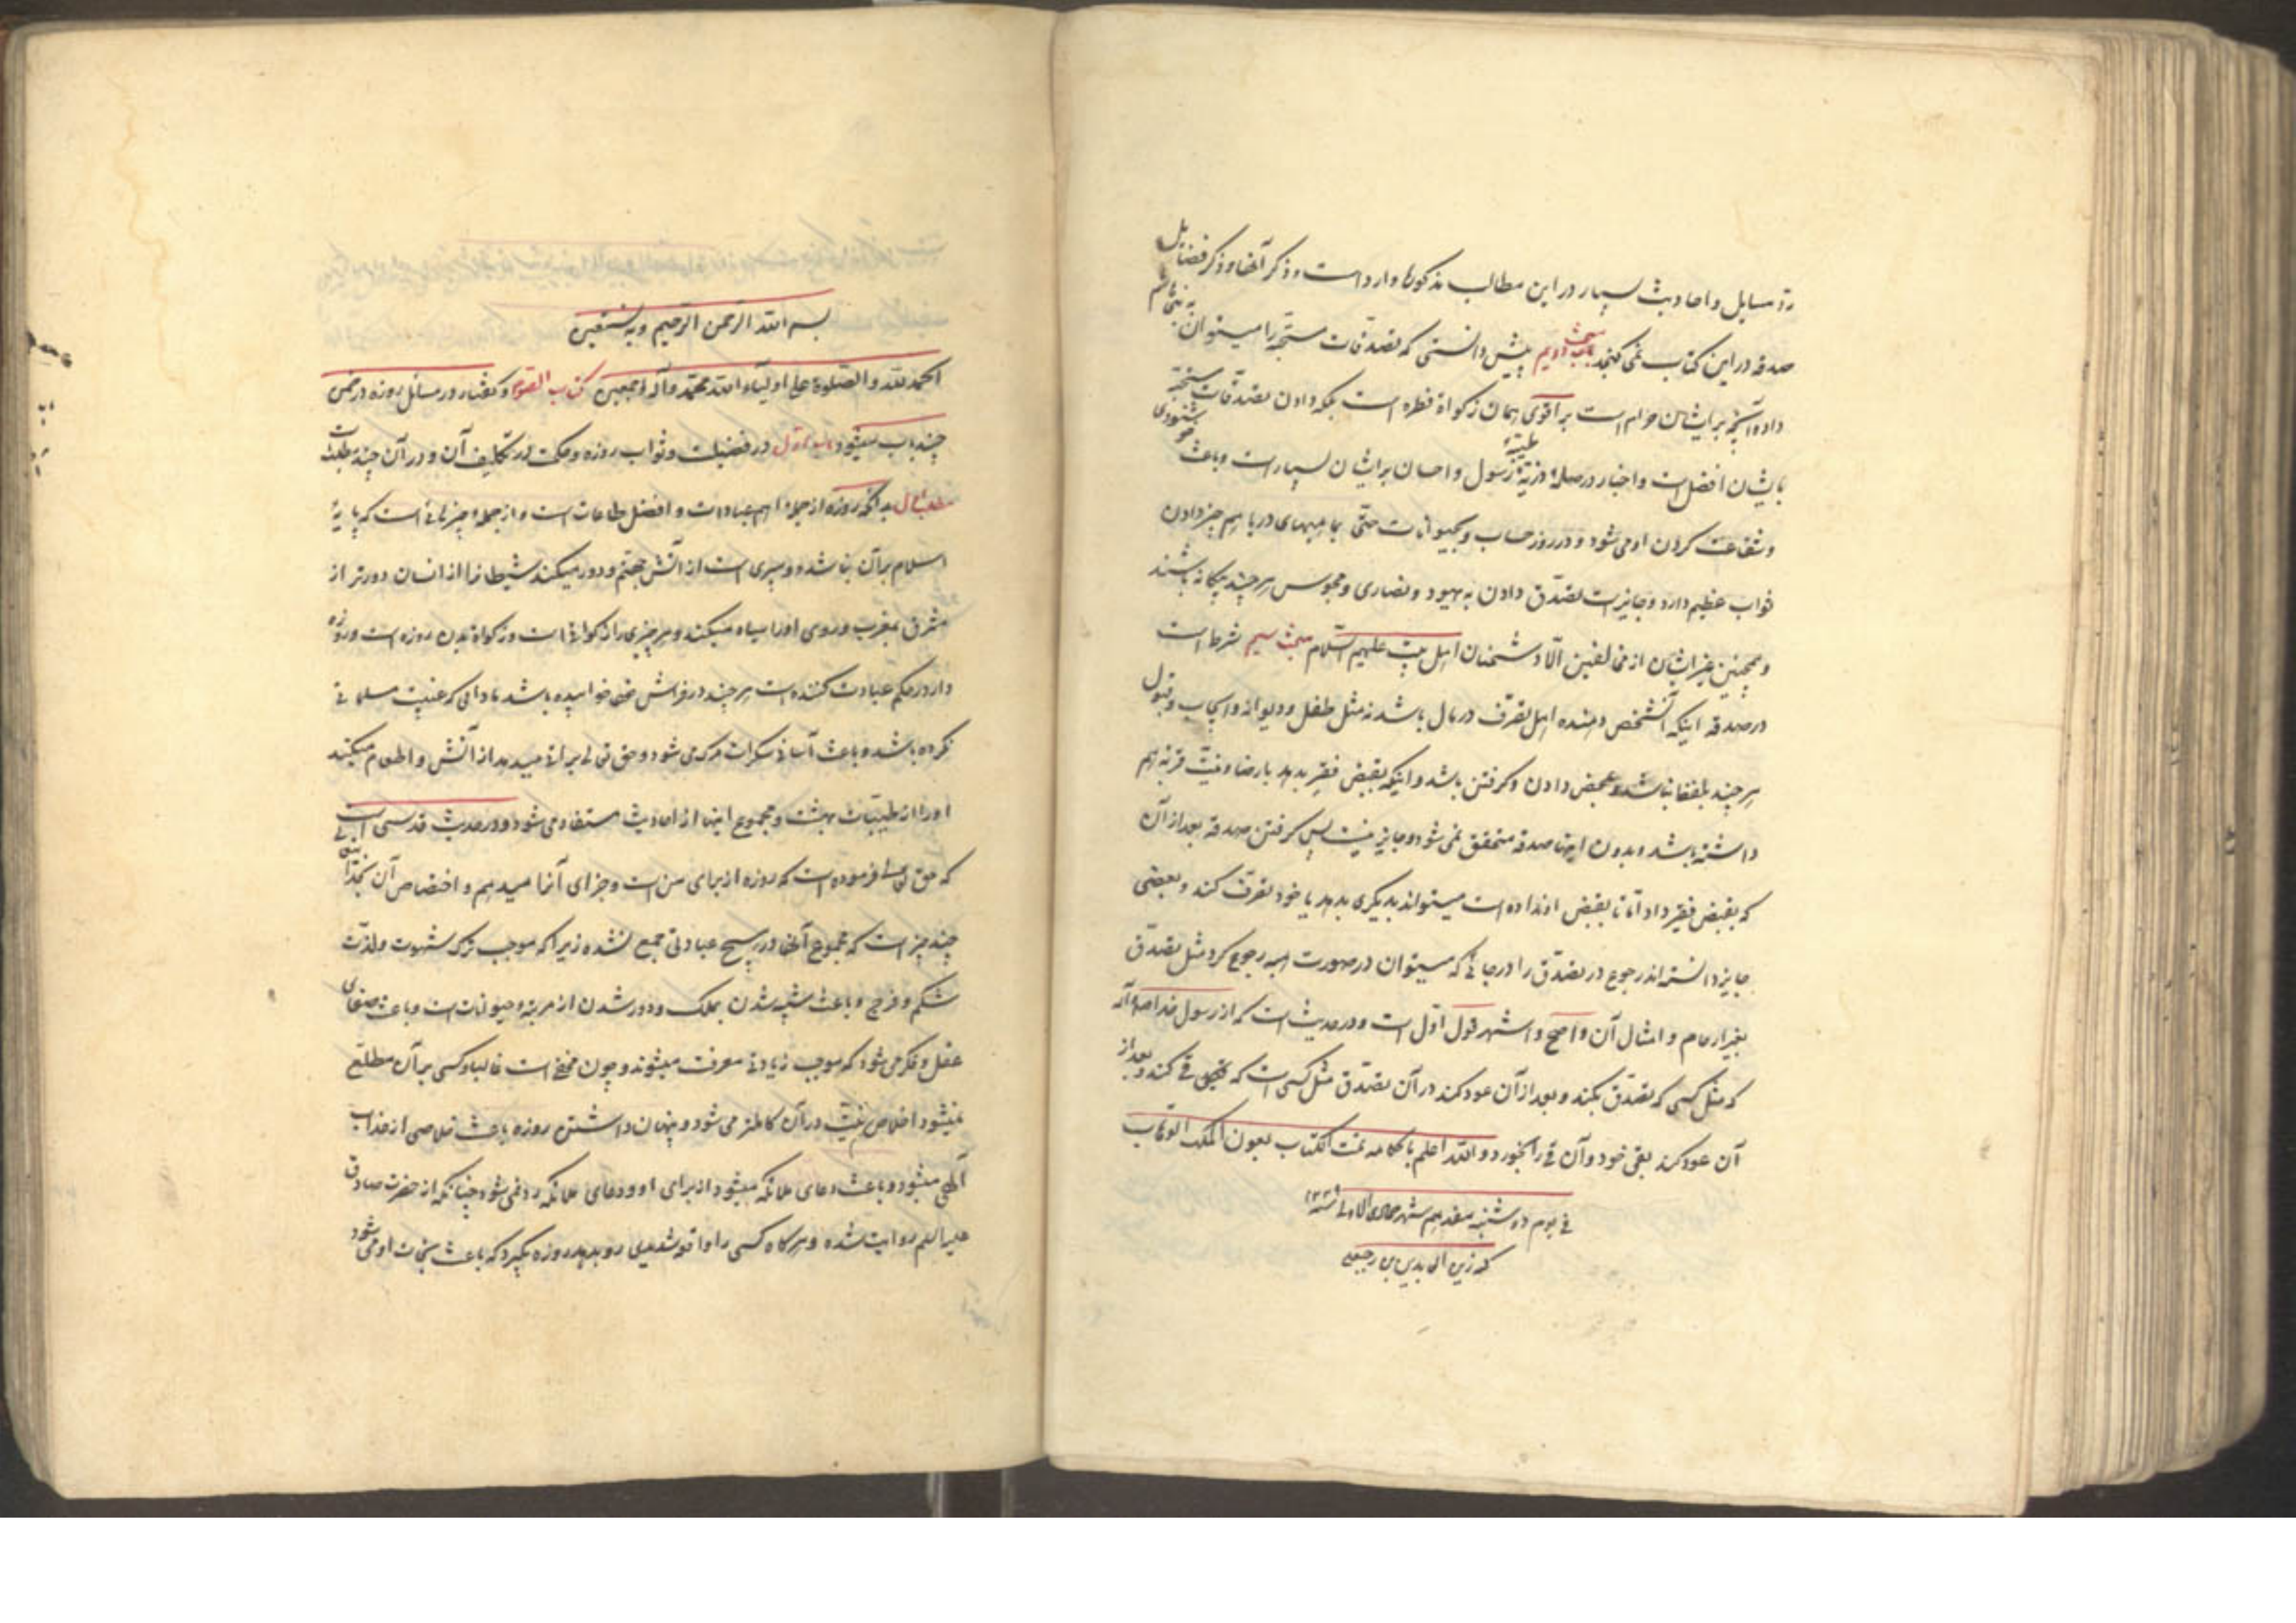 رد مسایل و احادیث بسیار در این مطالب مذکوره وارد است و ذکر آنها و ذکر فضایل
صدقه در این کتاب نمی کنجد مبحث دویم پیش دانستی که تصدقات مستحبه را میتوان به بنی هاشم
داد و آنچه بر ایشان حرام است بر اقوی همان زکواة فطره است بلکه دادن تصدقات مستحبه
بایشان افضل است و اخبار در صله ذریه طیبه رسول و احسان بر ایشان بسیار است و باعث خوشنودی
و شفاعت کردن او می شود در روز حساب و بحیوانات حتی بماهیهای دریا هم چیز دادن
ثواب عظیم دارد و جایز است تصدق دادن به یهود و نصاری و مجوس هر چند بیکانه باشند
و همچنین غیر ایشان از مخالفین الا دشمنان اهل بیت علیهم السلام مبحث سیم شرط است
در صدقه اینکه آنشخص دهنده اهل تصرف در مال باشد نه مثل طفل و دیوانه و ایجاب و قبول
هر چند بلفظ نباشد و بمحض دادن و کرفتن باشد و اینکه بقبض فقیر بدهد با رضا و نیت قربة هم
داشته باشد و بدون اینها صدقه متحقق نمی شود و جایز نیست پس کرفتن صدقه بعد از آن
که بقبض فقیر داد اما تا بقبض او نداده است میتواند بدیکری بدهد یا خود تصرف کند و بعضی
جایز دانسته اند رجوع در تصدق را در جائی که میتوان در صورت هبه رجوع کرد مثل تصدق
بغیر ارحام و امثال آن و اصح و اشهر قول اول است و در حدیث است که از رسول خدا ص و آله
که مثل کسی که تصدق بکند و بعد از آن عود کند در آن تصدق مثل کسی است که قی کند و بعد از
آن عود کند بقی خود و آن قی را بخورد و الله اعلم باحکامه تمت الکتاب بعون الملک الوهاب
فی یوم دوشنبه هفدهم شهر جمادی الاولی سنه
کہ زین العابدین بن رجبعلی
بسم الله الرحمن الرحیم و به نستعین
الحمد لله و الصلوة علی اولیاء الله محمد و آله اجمعین کتاب الصوم و کفتار در مسائل روزه در ضمن
چند باب میشود باب اول در فضیلت و ثواب روزه و حکمت در تکلیف آن و در آن چند مطلب است
مطلب اول بدانکه روزه از جمله اهم عبادات و افضل طاعات است و از جمله چیزهائی است که پایه
اسلام بر آن بنا شده و سپری است از آتش جهنم و دور میکند شیطانرا از انسان دورتر از
مشرق بمغرب و روی او را سیاه میکند و هر چیزی را زکواتی است و زکواة بدن روزه است و روزه
دار در حکم عبادت کننده است هر چند در فراش خود خوابیده باشد مادامی که غیبت مسلمانی
نکرده باشد و باعث آسانی سکرات مرک می شود و حق تعالی براتی میدهد از آتش و اطعام میکند
او را از طیبات بهشت و مجموع اینها از احادیث مستفاد می شود و در حدیث قدسی است
که حق تعالی فرموده است که روزه از برای من است و جزای آنرا میدهم و اختصاص آن بخدا
چند چیز است که مجموع آنها در هیچ عبادتی جمع نشده زیرا که موجب ترک شهوت و لذت
شکم و فرج و باعث شبیه شدن بملک و دور شدن از مرتبه حیوانات است و باعث صفای
عقل و فکر می شود که موجب زیادتی معرفت میشوند و چون مخفی است غالبا و کسی بر آن مطلع
نمیشود اخلاص نیت در آن کاملتر می شود و پنهان داشتن روزه باعث خلاصی از عذاب
آلهی میشود و باعث دعای ملائکه میشود از برای او و دعای ملائکه رد نمی شود چنانکه از حضرت صادق
علیه السلام روایت شده و هر کاه کسی را واقعه شدیدی رو بدهد روزه بکیرد که باعث نجات او می شود